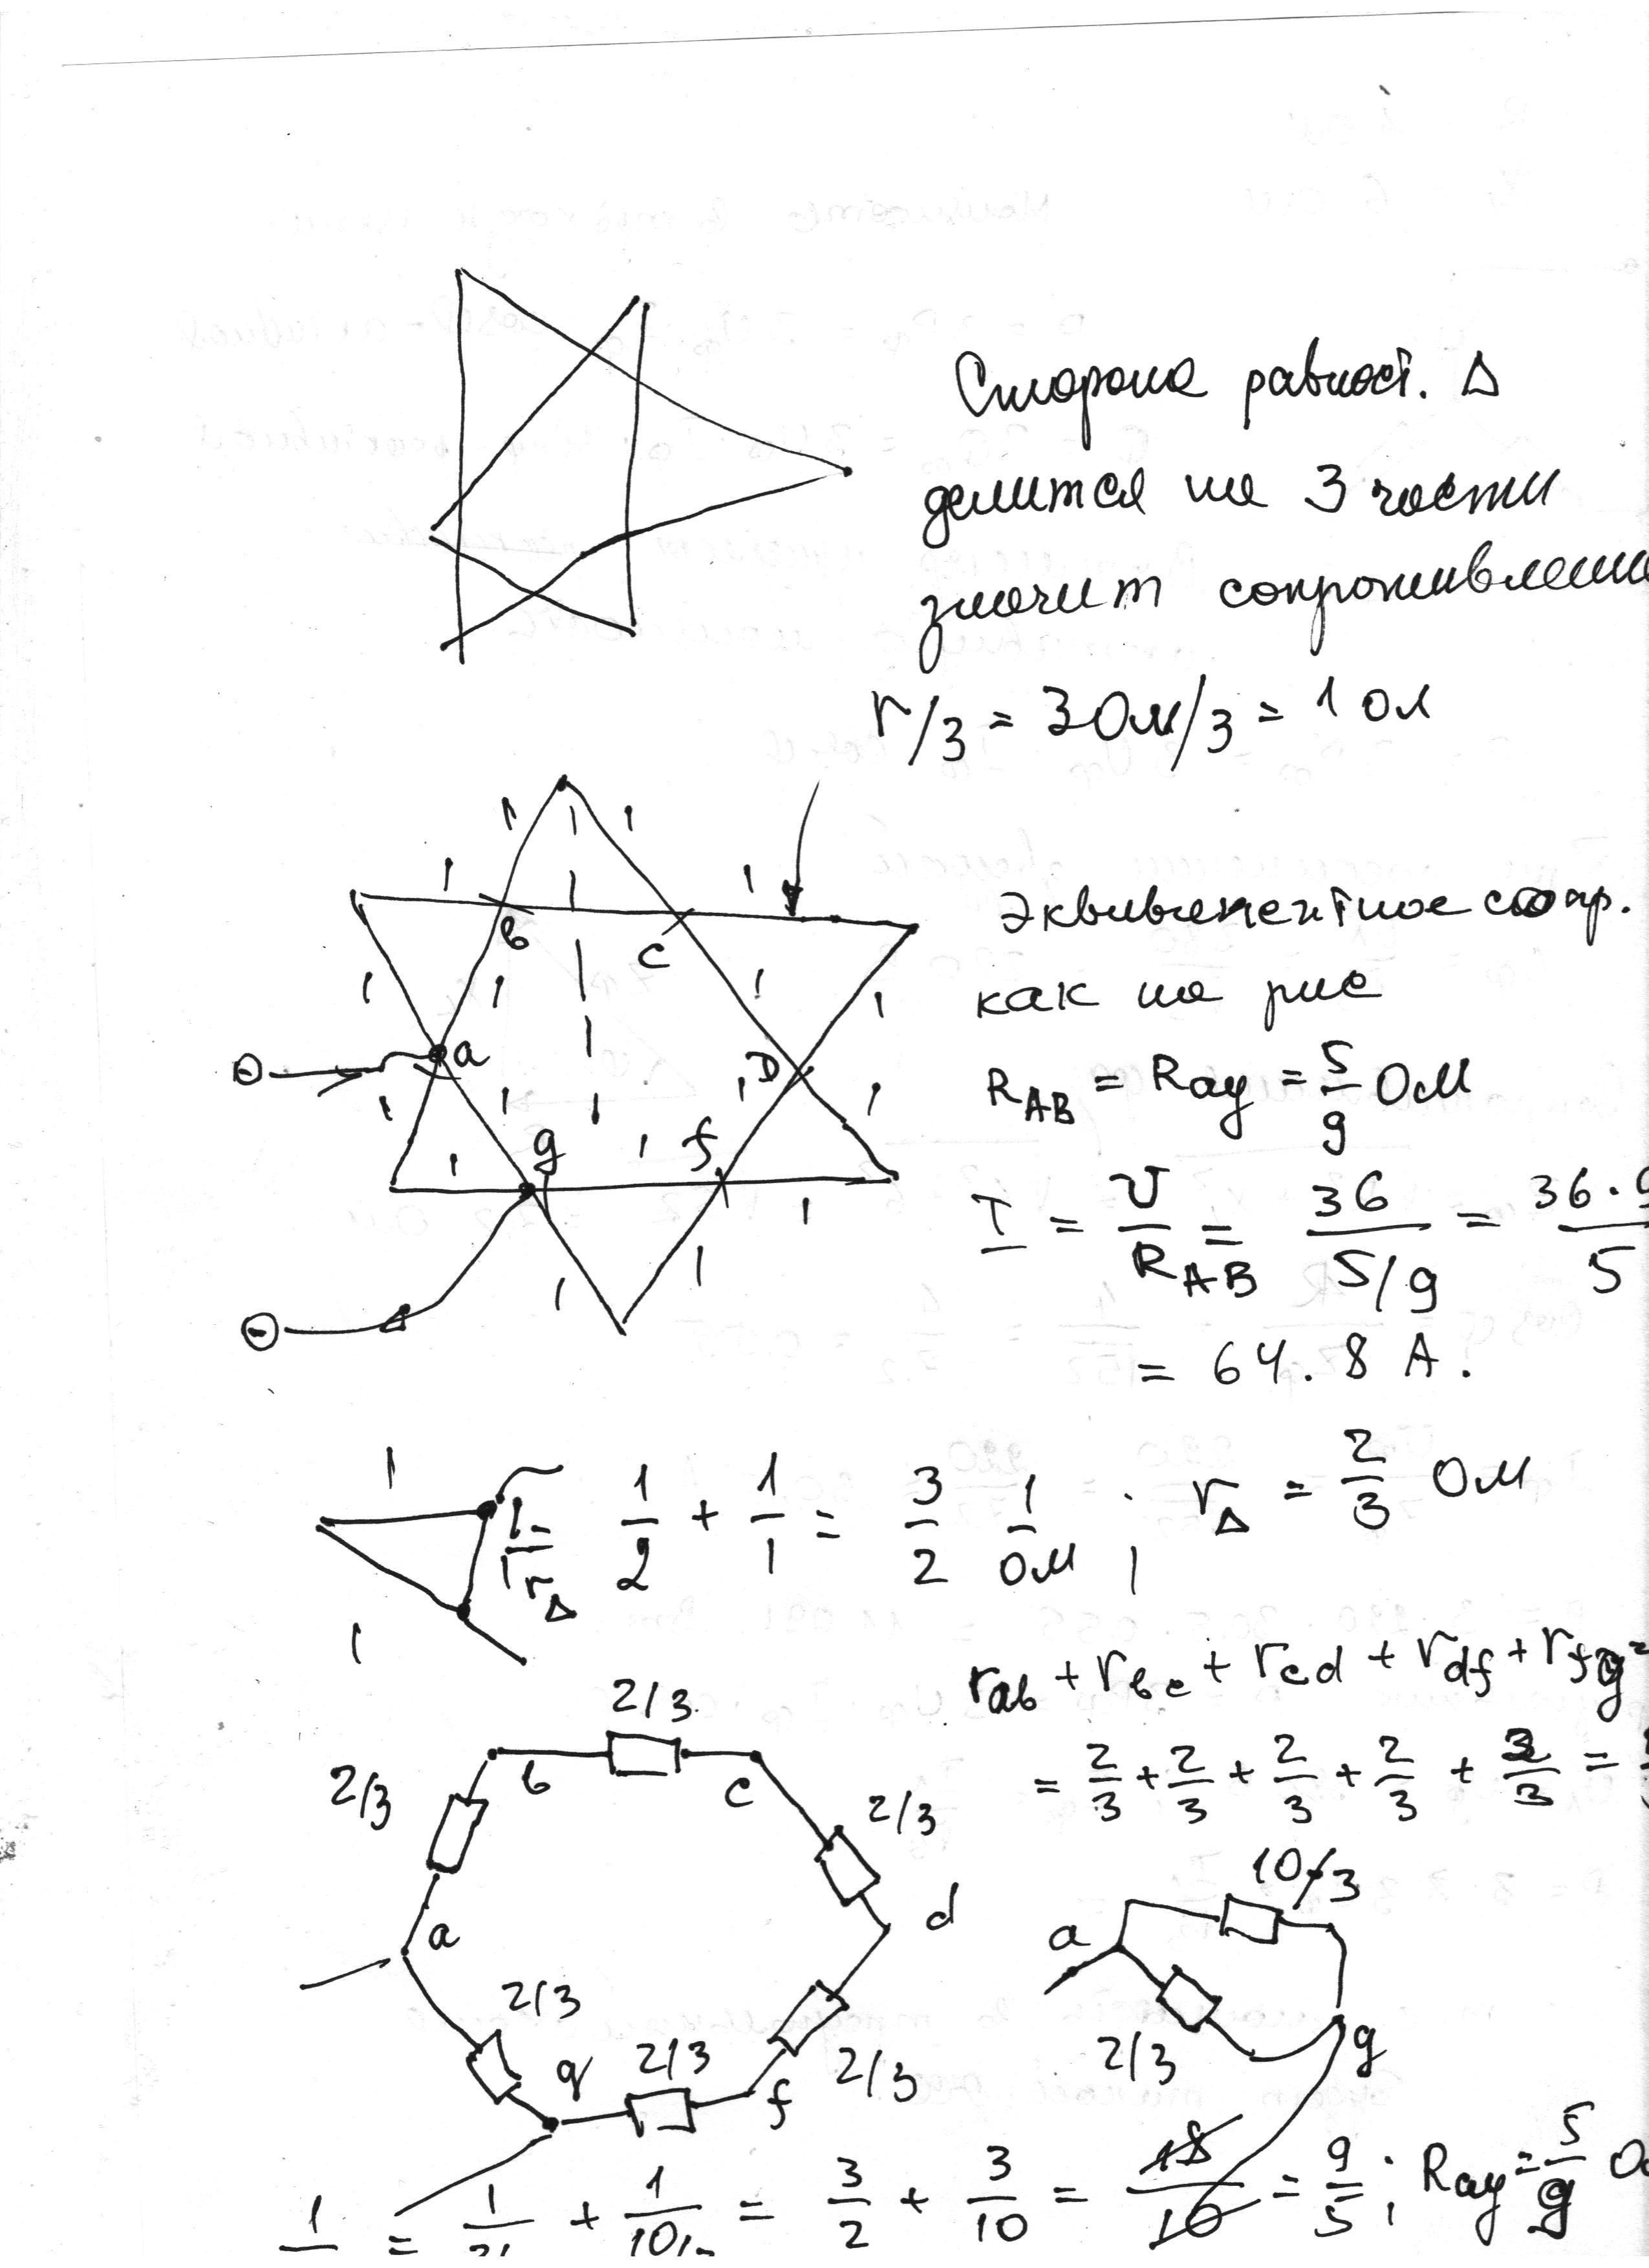 Сторона равност. Δ
делится на 3 части
значит сопротивлени
r/3 = 3 Ом/3 = 1 Ом
1 1
1 1
b c
1 1 1 1
a D
1 1 1 1
g f
1 1
1 1
1 1
Эквивалентное сопр.
как на рис
R AB = Rag = 5/9 Ом
I = U/R AB = 36/5/9 = 36·9/5
= 64.8 A.
1
1
1/r Δ 1/2 + 1/1 = 3/2 1/Ом ; r Δ = 2/3 Ом
rab + rbc + rcd + rdf + rfg =
= 2/3 + 2/3 + 2/3 + 2/3 + 2/3 =
2/3
2/3 b c 2/3
a d
2/3 g 2/3 f 2/3
10/3
a
2/3 g
1 = 1 + 1/10/3 = 3/2 + 3/10 = 18/10 = 9/5 ; Rag = 5/9 О